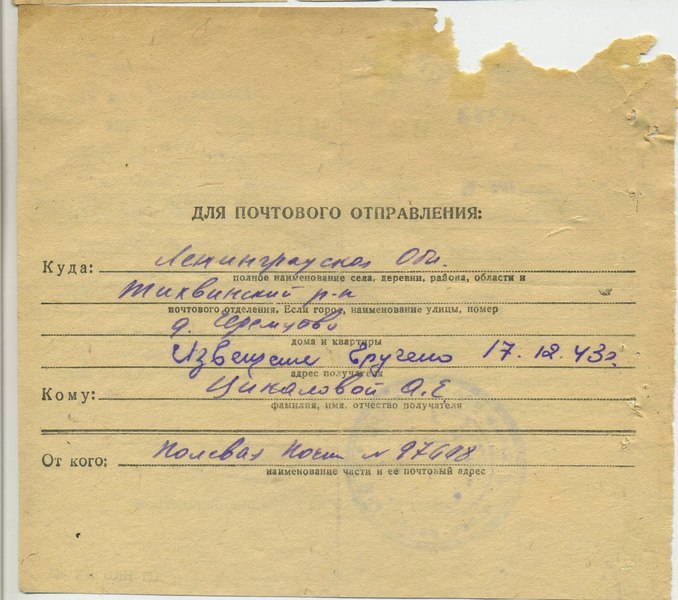 ДЛЯ ПОЧТОВОГО ОТПРАВЛЕНИЯ:
Куда: Ленинградская Обл.
полное наименование села, деревни, района, области и
Тихвинский р-н
почтового отделения. Если город, наименование улицы, номер
д.
дома и квартиры
Извещение Вручено 17.12.43г.
адрес получателя
Кому: Цикаловой А.Е
фамилия, имя, отчество получателя
От кого: Полевая Почт №
наименование части и ее почтовый адрес